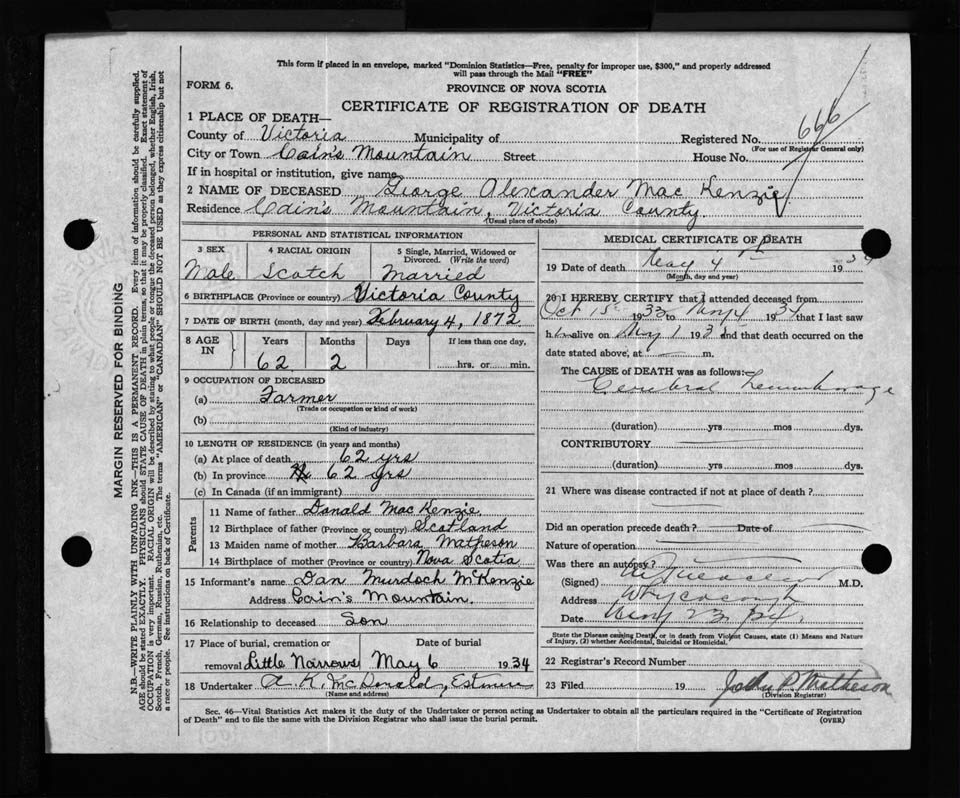 This form if placed in an envelope, marked "Dominion Statistics—Free, penalty for improper use, $300," and properly addressed
will pass through the Mail "FREE"
FORM 6.
PROVINCE OF NOVA SCOTIA
CERTIFICATE OF REGISTRATION OF DEATH
666
1 PLACE OF DEATH—
County of Victoria Municipality of Registered No.
(For use of Registrar General only)
City or Town Cain's Mountain Street House No.
If in hospital or institution, give name
2 NAME OF DECEASED George Alexander Mac Kenzie
Residence Cain's Mountain, Victoria County.
(Usual place of abode)
PERSONAL AND STATISTICAL INFORMATION
3 SEX 4 RACIAL ORIGIN 5 Single, Married, Widowed or Divorced. (Write the word)
Male Scotch Married
6 BIRTHPLACE (Province or country) Victoria County
7 DATE OF BIRTH (month, day and year) February 4, 1872
8 AGE IN Years Months Days If less than one day,
62 2 hrs. or min.
9 OCCUPATION OF DECEASED
(a) Farmer
(Trade or occupation or kind of work)
(b)
(Kind of industry)
10 LENGTH OF RESIDENCE (in years and months)
(a) At place of death 62 yrs
(b) In province 62 yrs
(c) In Canada (if an immigrant)
Parents
11 Name of father Donald Mac Kenzie
12 Birthplace of father (Province or country) Scotland
13 Maiden name of mother Barbara Matheson
14 Birthplace of mother (Province or country) Nova Scotia
15 Informant's name Dan Murdoch McKenzie
Address Cain's Mountain.
16 Relationship to deceased Son
17 Place of burial, cremation or removal Date of burial
Little Narrows May 6 1934
18 Undertaker A. K. McDonald, Estmere
(Name and address)
MEDICAL CERTIFICATE OF DEATH
19 Date of death May 4th 1934
(Month, day and year)
20 I HEREBY CERTIFY that I attended deceased from
Oct 15 1933 to May 4 1934 that I last saw
him alive on May 1 193 and that death occurred on the
date stated above, at m.
The CAUSE of DEATH was as follows:
Cerebral Hemorrhage
(duration) yrs mos dys.
CONTRIBUTORY
(duration) yrs mos dys.
21 Where was disease contracted if not at place of death?
Did an operation precede death? Date of
Nature of operation
Was there an autopsy?
(Signed) M.D.
Address Whycocomagh
Date
State the Disease causing Death, or in death from Violent Causes, state (1) Means and Nature
of Injury, (2) whether Accidental, Suicidal or Homicidal.
22 Registrar's Record Number
23 Filed 19 John P. Matheson
(Division Registrar)
Sec. 46—Vital Statistics Act makes it the duty of the Undertaker or person acting as Undertaker to obtain all the particulars required in the "Certificate of Registration
of Death" and to file the same with the Division Registrar who shall issue the burial permit.
(OVER)
MARGIN RESERVED FOR BINDING
N.B.—WRITE PLAINLY WITH UNFADING INK—THIS IS A PERMANENT RECORD. Every item of information should be carefully supplied.
AGE should be stated EXACTLY. PHYSICIANS should STATE CAUSE OF DEATH in plain terms, so that it may be properly classified. Exact statement of
OCCUPATION is very important. RACIAL ORIGIN will be described by stating to what people or tongue the deceased person belonged, whether English, Irish,
Scotch, French, German, Russian, Ruthenian, etc. The terms "AMERICAN" or "CANADIAN" SHOULD NOT BE USED as they express citizenship but not
a race or people. See instructions on back of Certificate.